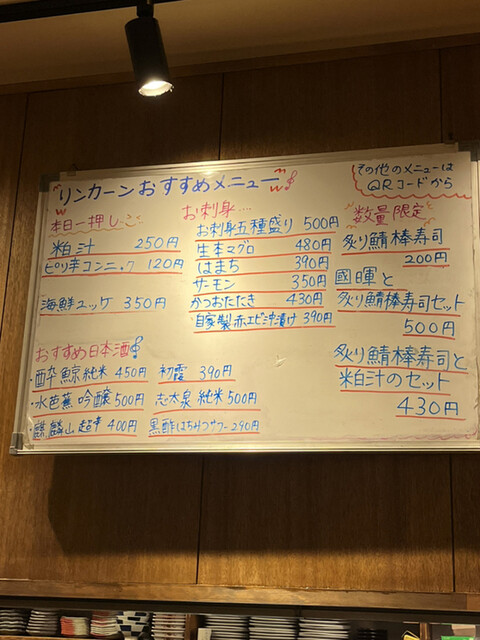 リンカーンおすすめメニュー
その他のメニューは
QRコードから
本日一押し
粕汁 250円
ピリ辛コンニャク 120円
海鮮ユッケ 350円
お刺身....
お刺身五種盛り 500円
生本マグロ 480円
はまち 390円
サーモン 350円
かつおたたき 430円
自家製赤エビ沖漬け 390円
数量限定
炙り鯖棒寿司
200円
國暉と
炙り鯖棒寿司セット
500円
炙り鯖棒寿司と
粕汁のセット
430円
おすすめ日本酒
・酔鯨純米 450円
・水芭蕉 吟醸 500円
・麒麟山 超辛 400円
初霞 390円
志太泉 純米 500円
黒酢はちみつサワー 290円